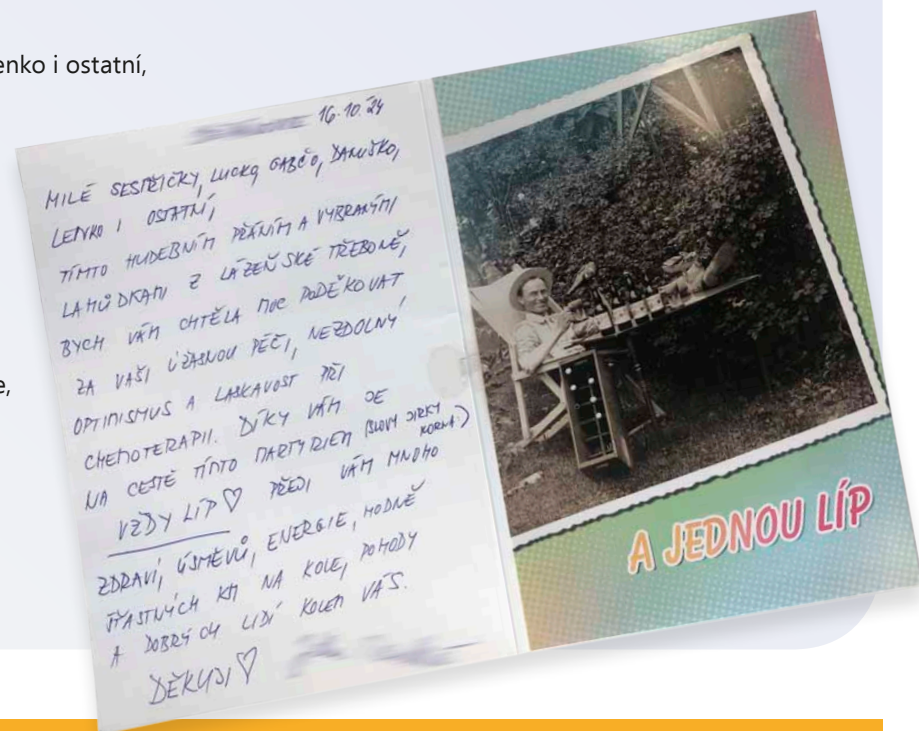 enko i ostatní,
e,
16. 10. 24
MILÉ SESTŘIČKY, LUCKO, GABČO, DANUŠKO,
LENKO I OSTATNÍ,
TÍMTO HUDEBNÍM PŘÁNÍM A VYBRANÝMI
LAHŮDKAMI Z LÁZEŇSKÉ TŘEBONĚ,
BYCH VÁM CHTĚLA MOC PODĚKOVAT
ZA VAŠI ÚŽASNOU PÉČI, NEZDOLNÝ
OPTIMISMUS A LASKAVOST PŘI
CHEMOTERAPII. DÍKY VÁM JE
NA CESTĚ TÍMTO MARTYRIEM (SLOVY JIRKY KORNA :)
VŽDY LÍP ♡ PŘEJI VÁM MNOHO
ZDRAVÍ, ÚSMĚVŮ, ENERGIE, HODNĚ
ŠŤASTNÝCH KM NA KOLE, POHODY
A DOBRÝCH LIDÍ KOLEM VÁS.
DĚKUJI ♡
A JEDNOU LÍP